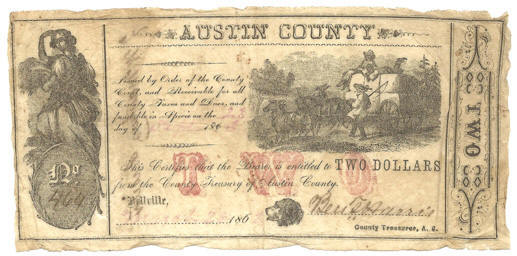 AUSTIN COUNTY
Issued by Order of the County
Court, and Receivable for all
County Taxes and Dues, and
fundable in Specie on the
day of 186
This Certifies that the Bearer is entitled to TWO DOLLARS
from the County Treasury of Austin County.
Bellville, 186
County Treasurer, A. C.
No
TWO
TWO